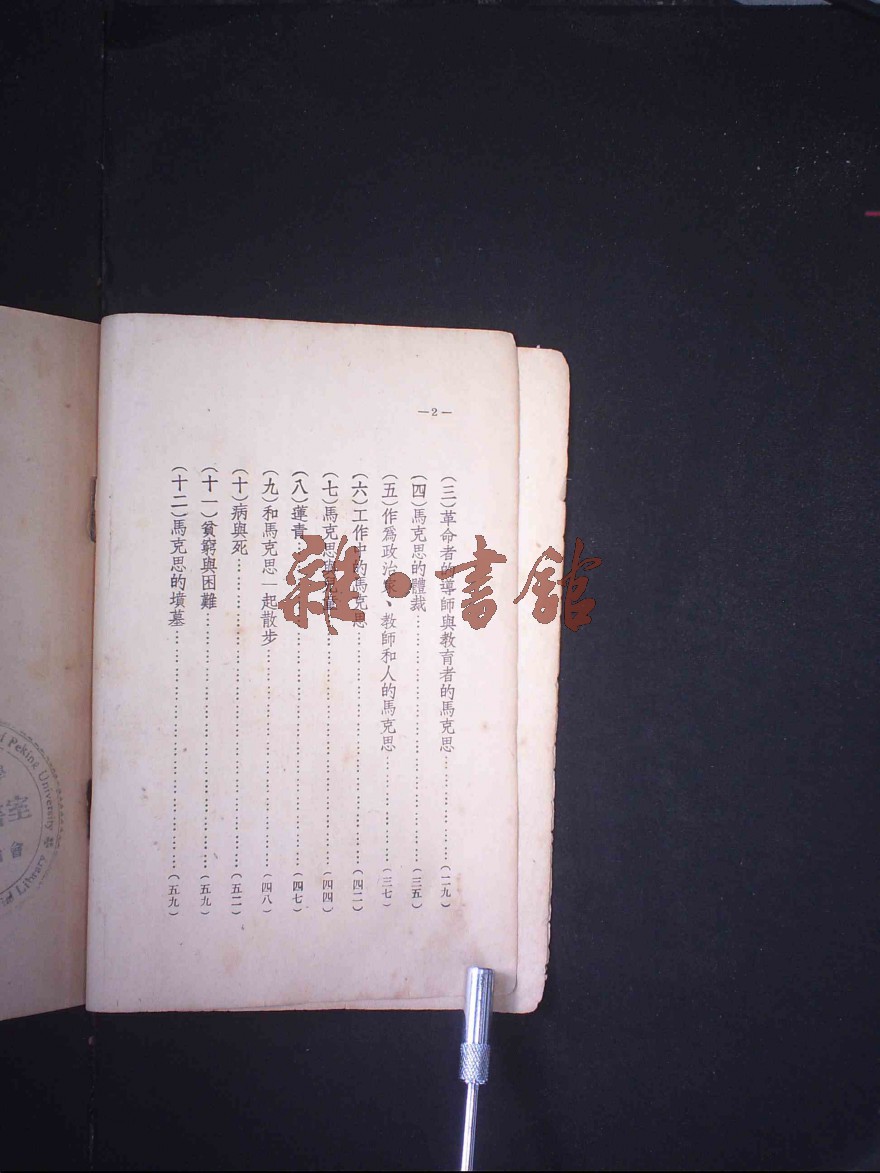 —2—
（三）革命者的導師與教育者的馬克思……（二九）
（四）馬克思的體裁……（三五）
（五）作爲政治家、教師和人的馬克思……（三七）
（六）工作中的馬克思……（四二）
（七）馬克思與兒童……（四四）
（八）蓮青……（四七）
（九）和馬克思一起散步……（四八）
（十）病與死……（五二）
（十一）貧窮與困難……（五九）
（十二）馬克思的墳墓……（五九）
雜·書館
Peking University
Library
室
會